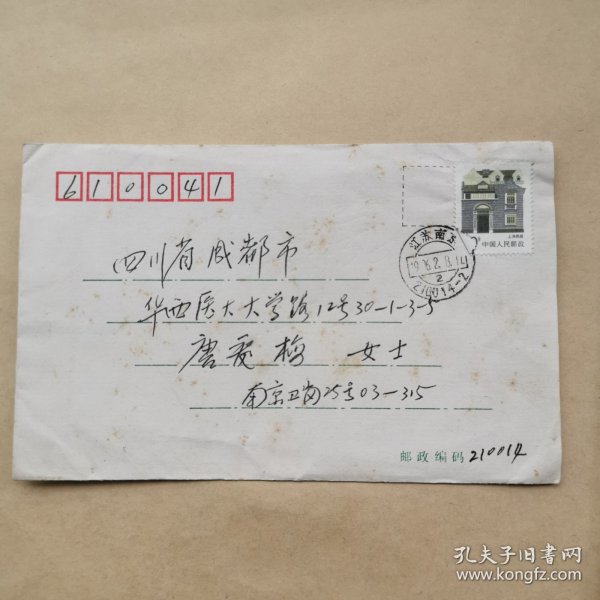 610041
上海民居
中国人民邮政
江苏南京
2
210014-2
四川省成都市
华西医大大学路12号30-1-3-5
唐爱梅 女士
南京卫岗25号03-315
邮政编码 210014
孔夫子旧书网
www.kongfz.com